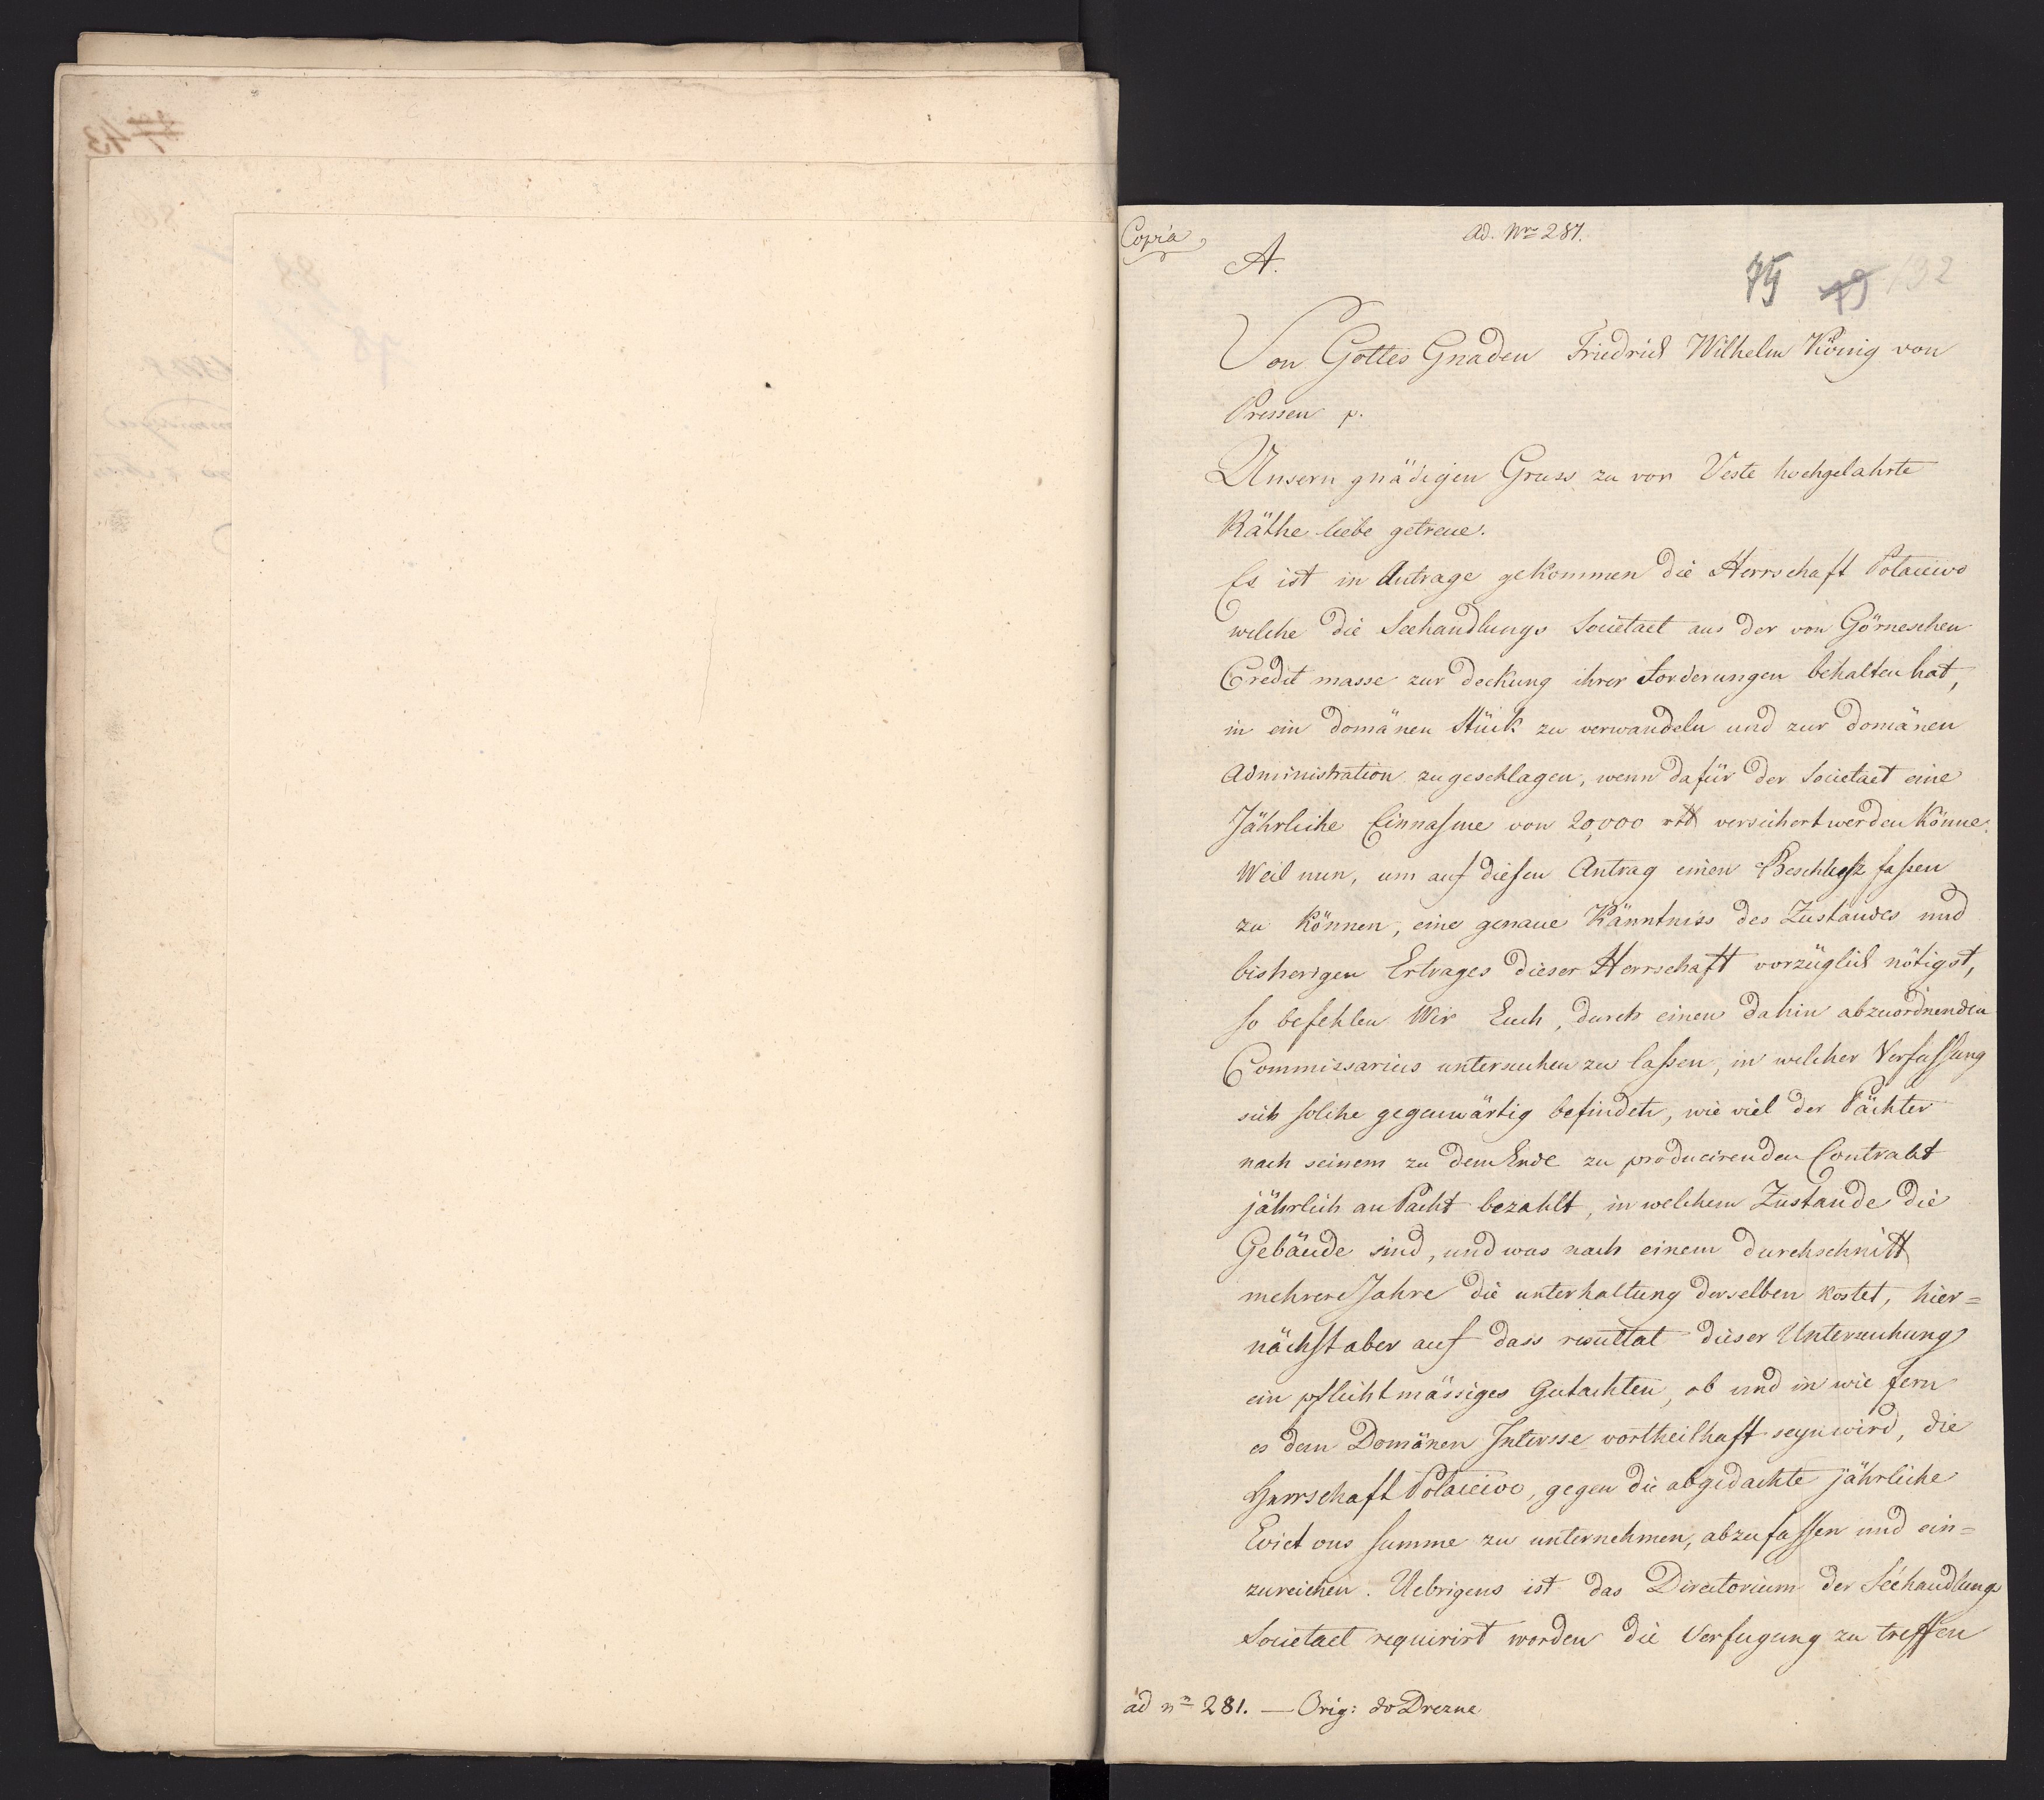 43
Copia
ad. Nro 287.
A.
75 79 132
Von Gottes Gnaden Friedrich Wilhelm König von
Pressen p.
Unsern gnädigen Gruss zu vor Veste hochgelahrte
Räthe liebe getreue.
Es ist in Antrage gekommen die Herrschaft Polaiewo
welche die Seehandlungs Societaet aus der von Görneschen
Credit masse zur deckung ihrer Forderungen behalten hat,
in ein Domänen Stück zu verwandeln und zur Domänen
Administration zugeschlagen, wenn dafür der Societaet eine
Jährliche Einnahme von 20,000 rtl versichert werden könne.
Weil nun, um auf diesen Antrag einen Beschlusz faßen
zu können, eine genaue Känntniss des Zustandes und
bisherigen Ertrages dieser Herrschaft vorzüglich nötigst,
so befehlen Wir Euch, durch einen dahin abzuordnenden
Commissarius untersuchen zu laßen, in welcher Verfassung
sich solche gegenwärtig befindet, wie viel der Pächter
nach seinem zu dem Ende zu producirenden Contrakt
jährlich an Pacht bezahlt, in welchem Zustande die
Gebäude sind, und was nach einem durchschnitt
mehrere Jahre die unterhaltung derselben kostet, hier=
nächst aber auf dass resultat dieser Untersuchung
ein pflichtmässiges Gutachten, ob und in wie fern
es dem Domänen Interesse vortheilhaft seyn wird, die
Herrschaft Polaiewo, gegen die abgedachte jährliche
Evict ons summe zu unternehmen, abzufassen und ein=
zureichen. Uebrigens ist das Directorium der Seehandlungs
Societaet requirirt worden die Verfugung zu treffen
ad nro 281. — Orig: do Drezne